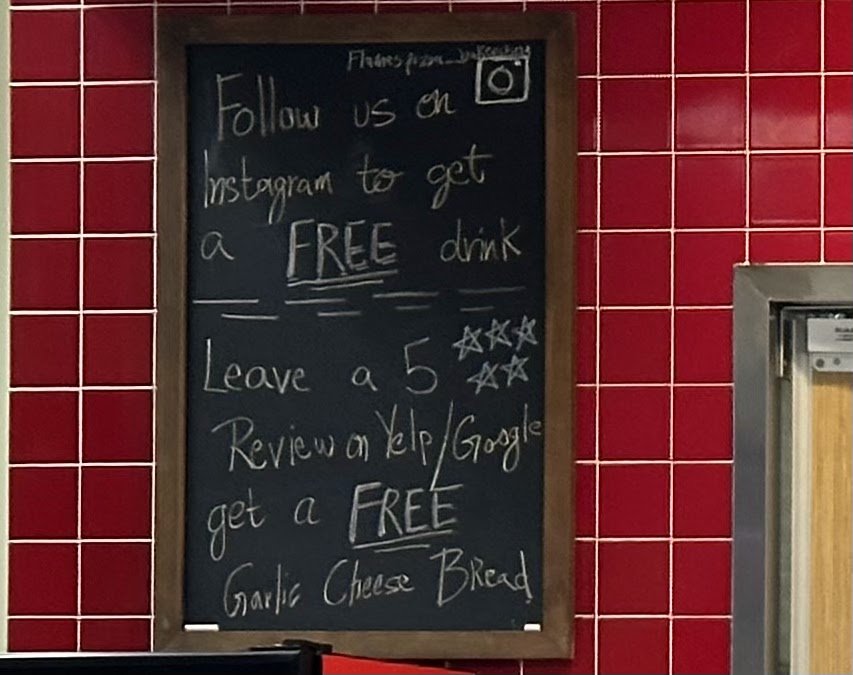 Follow us on
Instagram to get
a FREE drink
Leave a 5
Review on Yelp/Google
get a FREE
Garlic Cheese Bread